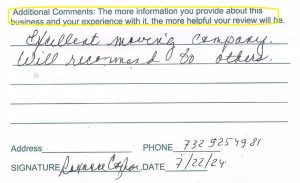 Additional Comments: The more information you provide about this
business and your experience with it, the more helpful your review will be.
Excellent moving company.
Will recommend to others.
Address PHONE 732 9254981
SIGNATURE Roxanne DATE 7/22/24